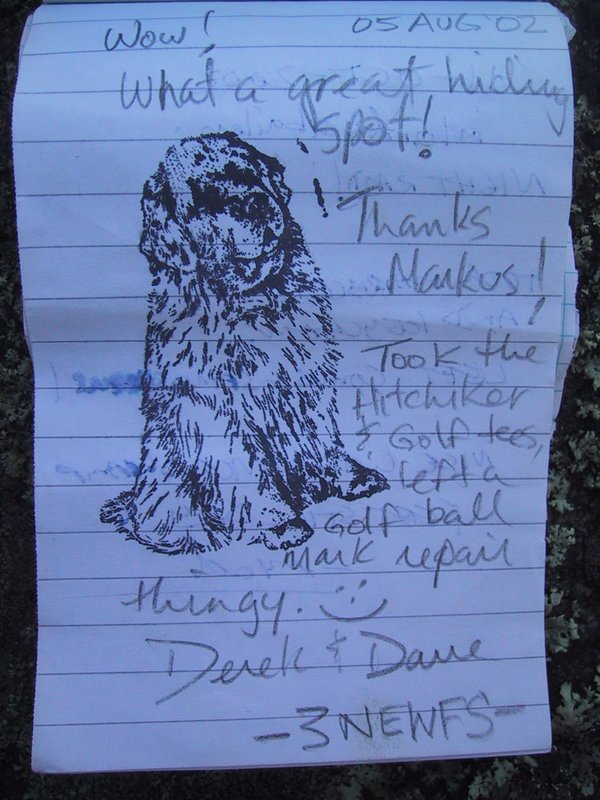 Wow! 05 AUG '02
What a great hiding
spot!
Thanks
Markus!
Took the
Hitchiker
& Golf tees,
left a
Golf ball
Mark repair
thingy. :)
Derek & Dave
-3 NEWFS-